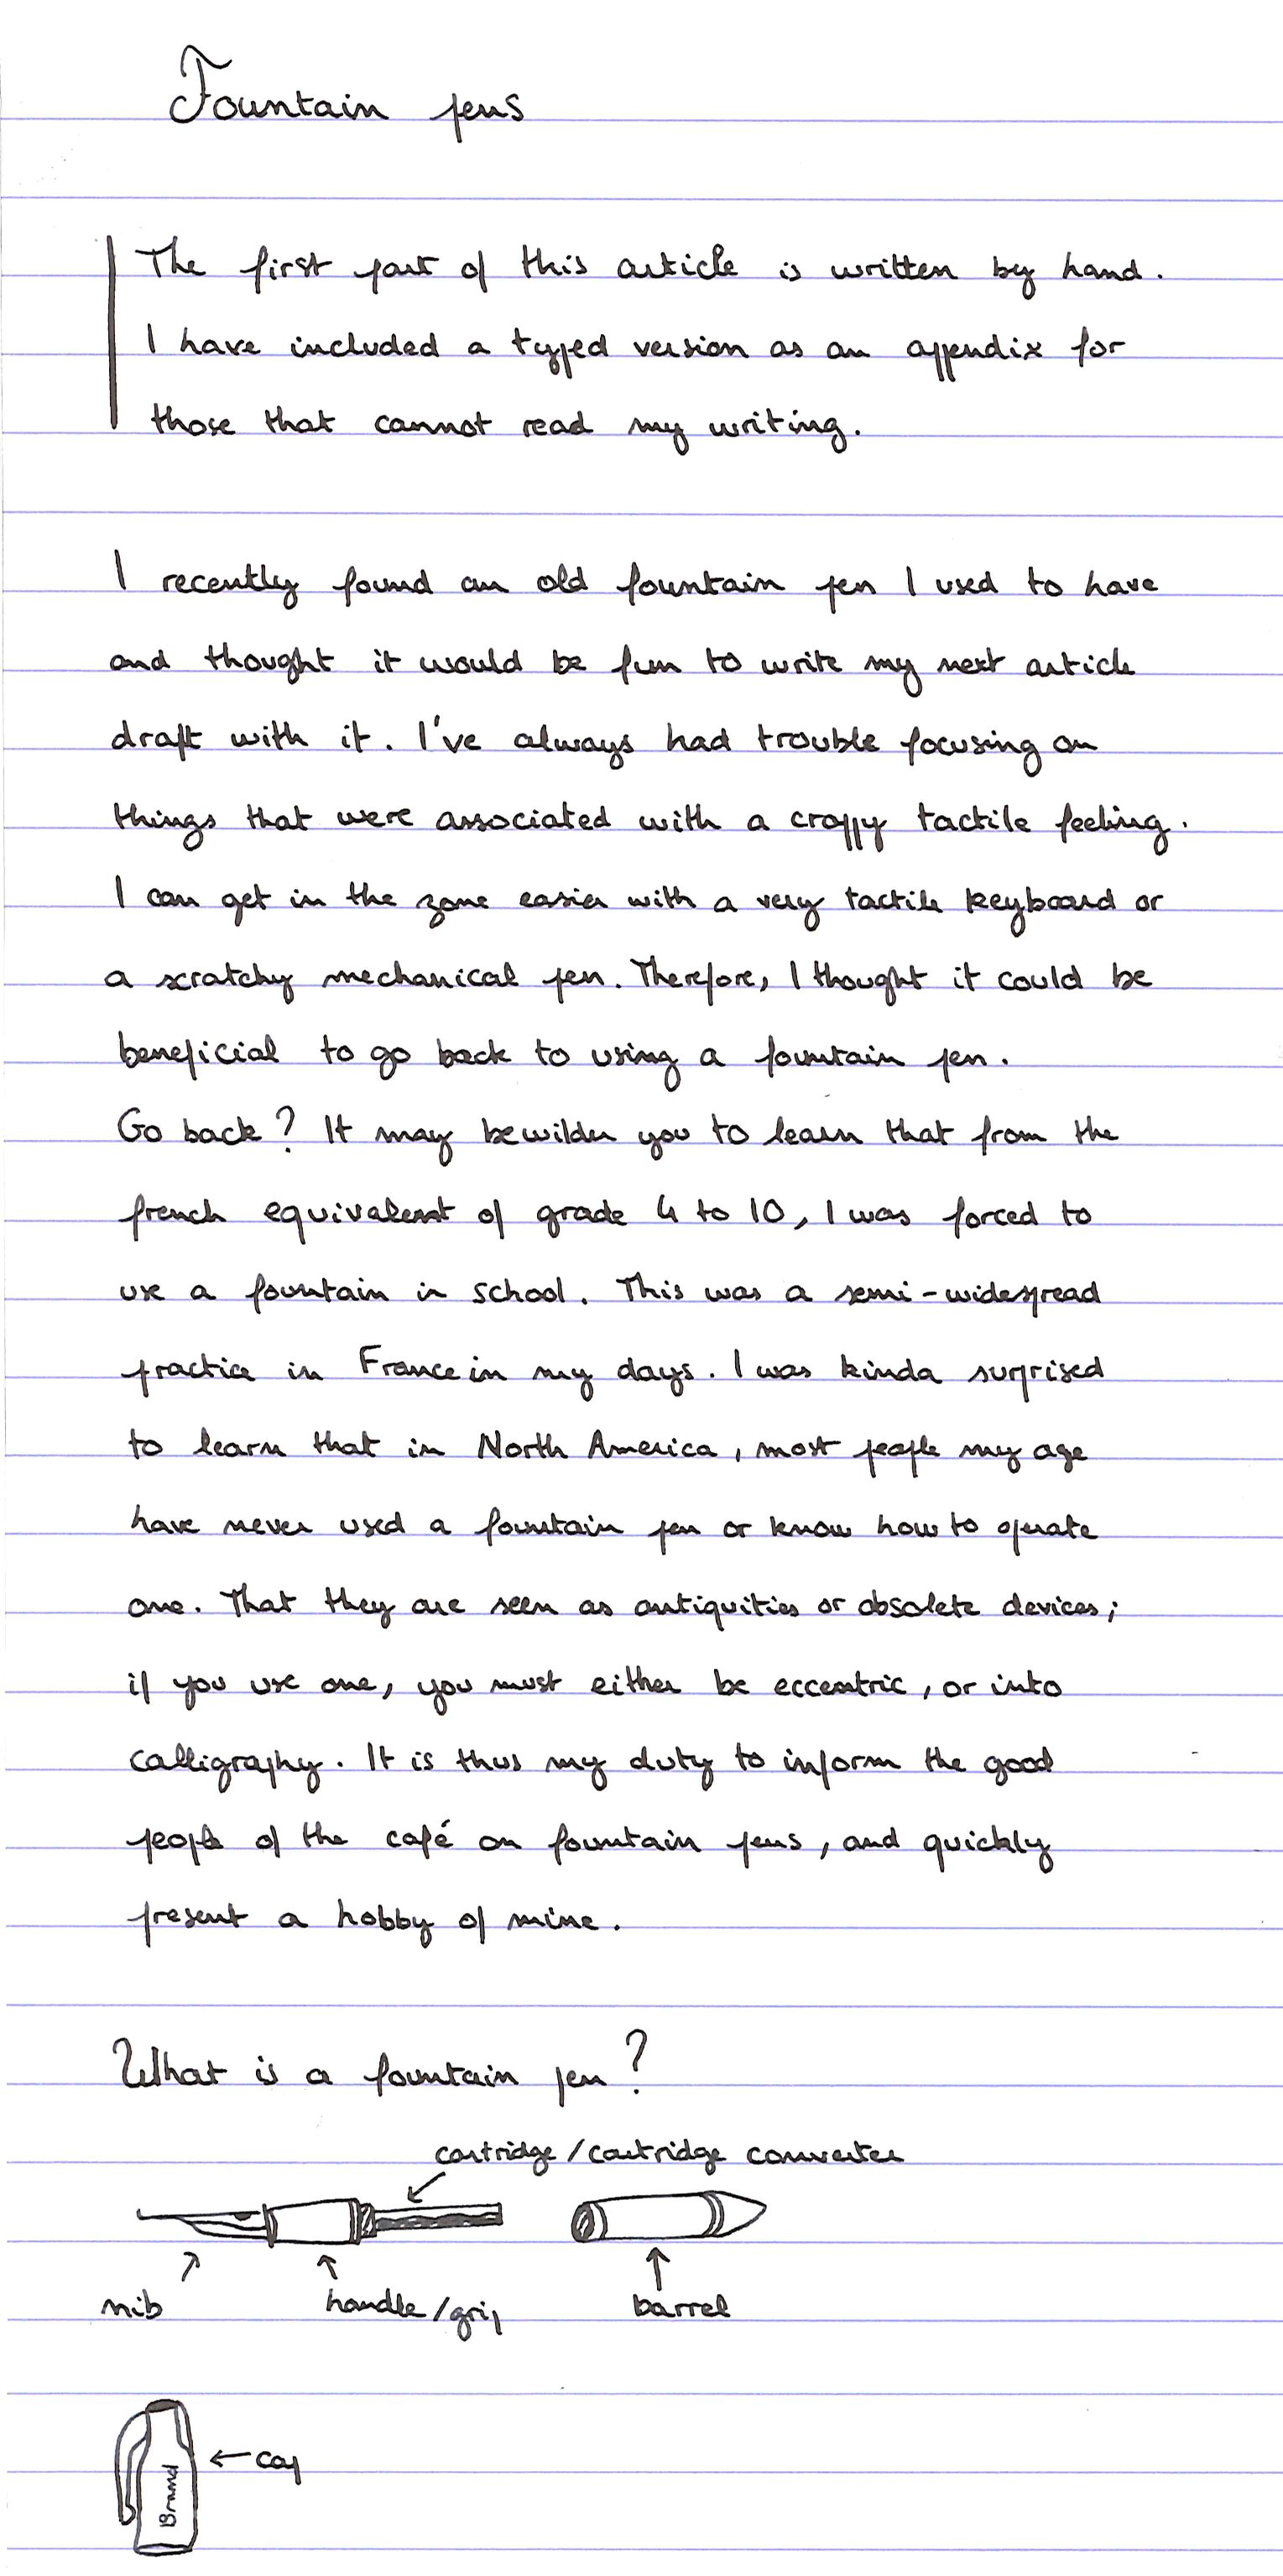 Fountain pens
The first part of this article is written by hand.
I have included a typed version as an appendix for
those that cannot read my writing.
I recently found an old fountain pen I used to have
and thought it would be fun to write my next article
draft with it. I've always had trouble focusing on
things that were associated with a crappy tactile feeling.
I can get in the zone easier with a very tactile keyboard or
a scratchy mechanical pen. Therefore, I thought it could be
beneficial to go back to using a fountain pen.
Go back? It may bewilder you to learn that from the
french equivalent of grade 4 to 10, I was forced to
use a fountain in school. This was a semi-widespread
practice in France in my days. I was kinda surprised
to learn that in North America, most people my age
have never used a fountain pen or know how to operate
one. That they are seen as antiquities or obsolete devices;
if you use one, you must either be eccentric, or into
calligraphy. It is thus my duty to inform the good
people of the café on fountain pens, and quickly
present a hobby of mine.
What is a fountain pen?
cartridge/cartridge converter
nib handle/grip barrel
cap
Brand